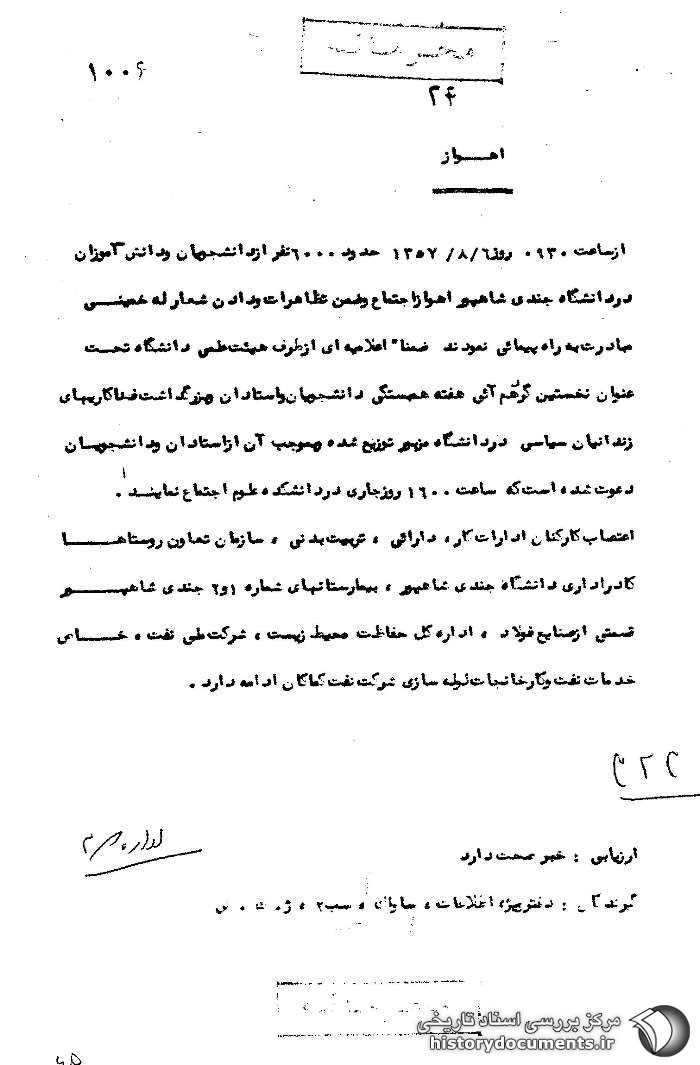 محرمانه
۱۰۰۶
۲۴
اهـــواز
ازساعت ۰۹۳۰ روز ۱۳۵۷/۸/۶ حدود ۶۰۰۰نفر ازدانشجویان ودانش آموزان
دردانشگاه جندی شاهپور اهوازاجتماع وضمن تظاهرات ودادن شعار له خمینــی
مبادرت به راه پیمائی نمودند ضمنا" اعلامیه ای ازطرف هیئت علمی دانشگاه تحــت
عنوان نخستین گردهم آئی هفته همبستگی دانشجویان واستادان وبزرگداشت فداکاریهای
زندانیان سیاسی دردانشگاه مزبور توزیع شده وبموجب آن ازاستادان ودانشجویــان
دعوت شده است که ساعت ۱۶۰۰ روزجاری دردانشکده علوم اجتماع نماینــد .
اعتصاب کارکنان ادارات کار، دارائی ، تربیت بدنی ، سازمان تعاون روستاهــا
کادراداری دانشگاه جندی شاهپور ، بیمارستانهای شماره ۱و۲ جندی شاهپـــور
قسمتی ازصنایع فولاد ، اداره کل حفاظت محیط زیست ، شرکت ملی نفت ، خـــای
خدمات نفت وکارخانجات لوله سازی شرکت نفت کماکان ادامه دارد .
۴۲۴
ارزیابی : خبر صحت دارد
گیرندگان : دفترویژه اطلاعات ، ساواک ،
مرکز بررسی اسناد تاریخی
historydocuments.ir